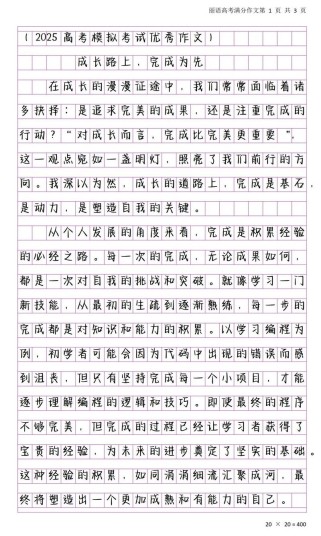 丽语高考满分作文第 1 页 共 3 页
(2025高考模拟考试优秀作文)
成长路上，完成为先
在成长的漫漫征途中，我们常常面临着诸
多抉择：是追求完美的成果，还是注重完成的
行动？“对成长而言，完成比完美更重要”，
这一观点宛如一盏明灯，照亮了我们前行的方
向。我深以为然，成长的道路上，完成是基石，
是动力，是塑造自我的关键。
从个人发展的角度来看，完成是积累经验
的必经之路。每一次的完成，无论成果如何，
都是一次对自我的挑战和突破。就像学习一门
新技能，从最初的生疏到逐渐熟练，每一步的
完成都是对知识和能力的积累。以学习编程为
例，初学者可能会因为代码中出现的错误而感
到沮丧，但只有坚持完成每一个小项目，才能
逐步理解编程的逻辑和技巧。即使最终的程序
不够完美，但完成的过程已经让学习者获得了
宝贵的经验，为未来的进步奠定了坚实的基础。
这种经验的积累，如同涓涓细流汇聚成河，最
终将塑造出一个更加成熟和有能力的自己。
20 × 20 = 400